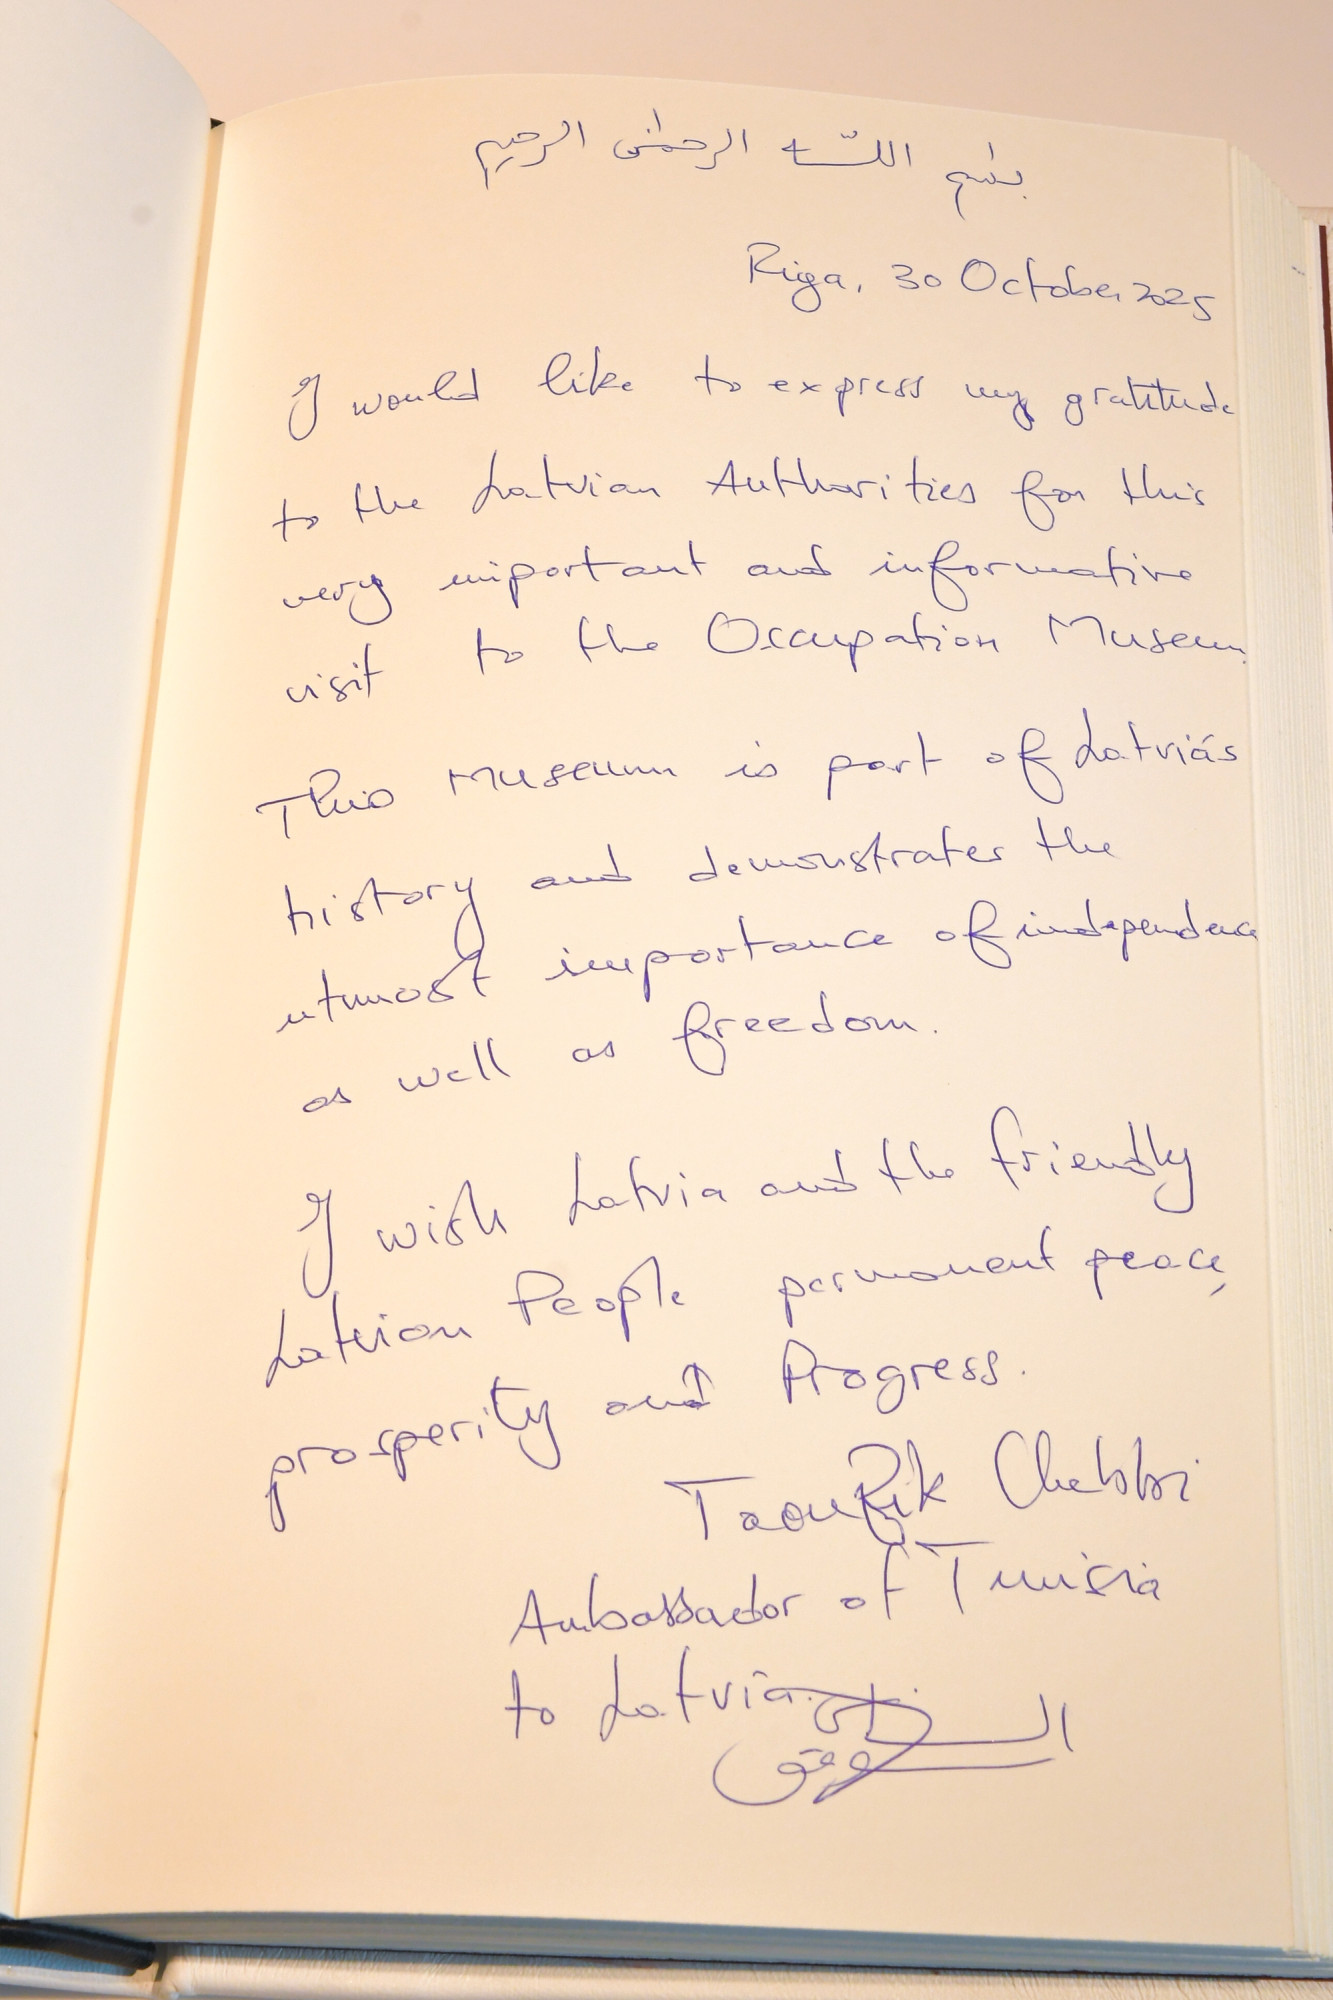 بسم اللـــه الرحمٰن الرحيم
Riga, 30 October 2025
I would like to express my gratitude
to the Latvian Authorities for this
very important and informative
visit to the Occupation Museum.
This Museum is part of Latvia's
history and demonstrates the
utmost importance of independence
as well as freedom.
I wish Latvia and the friendly
Latvian People permanent peace,
prosperity and Progress.
Taoufik Chebbi
Ambassador of Tunisia
to Latvia.